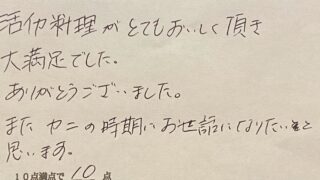 活カニ料理がとてもおいしく頂き
大満足でした。
ありがとうございました。
また カニの時期にお世話になりたいと
思います。
10点満点で 10 点